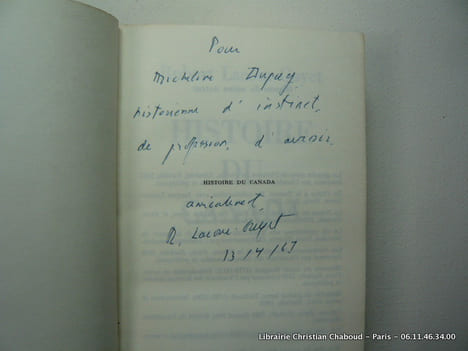 Pour
Micheline Dupuy
historienne d'instinct,
de profession, d'avenir,
HISTOIRE DU CANADA
amicalement,
R. Lacour-Gayet
13/4/67
HISTOIRE
DU
Librairie Christian Chaboud – Paris – 06.11.46.34.00